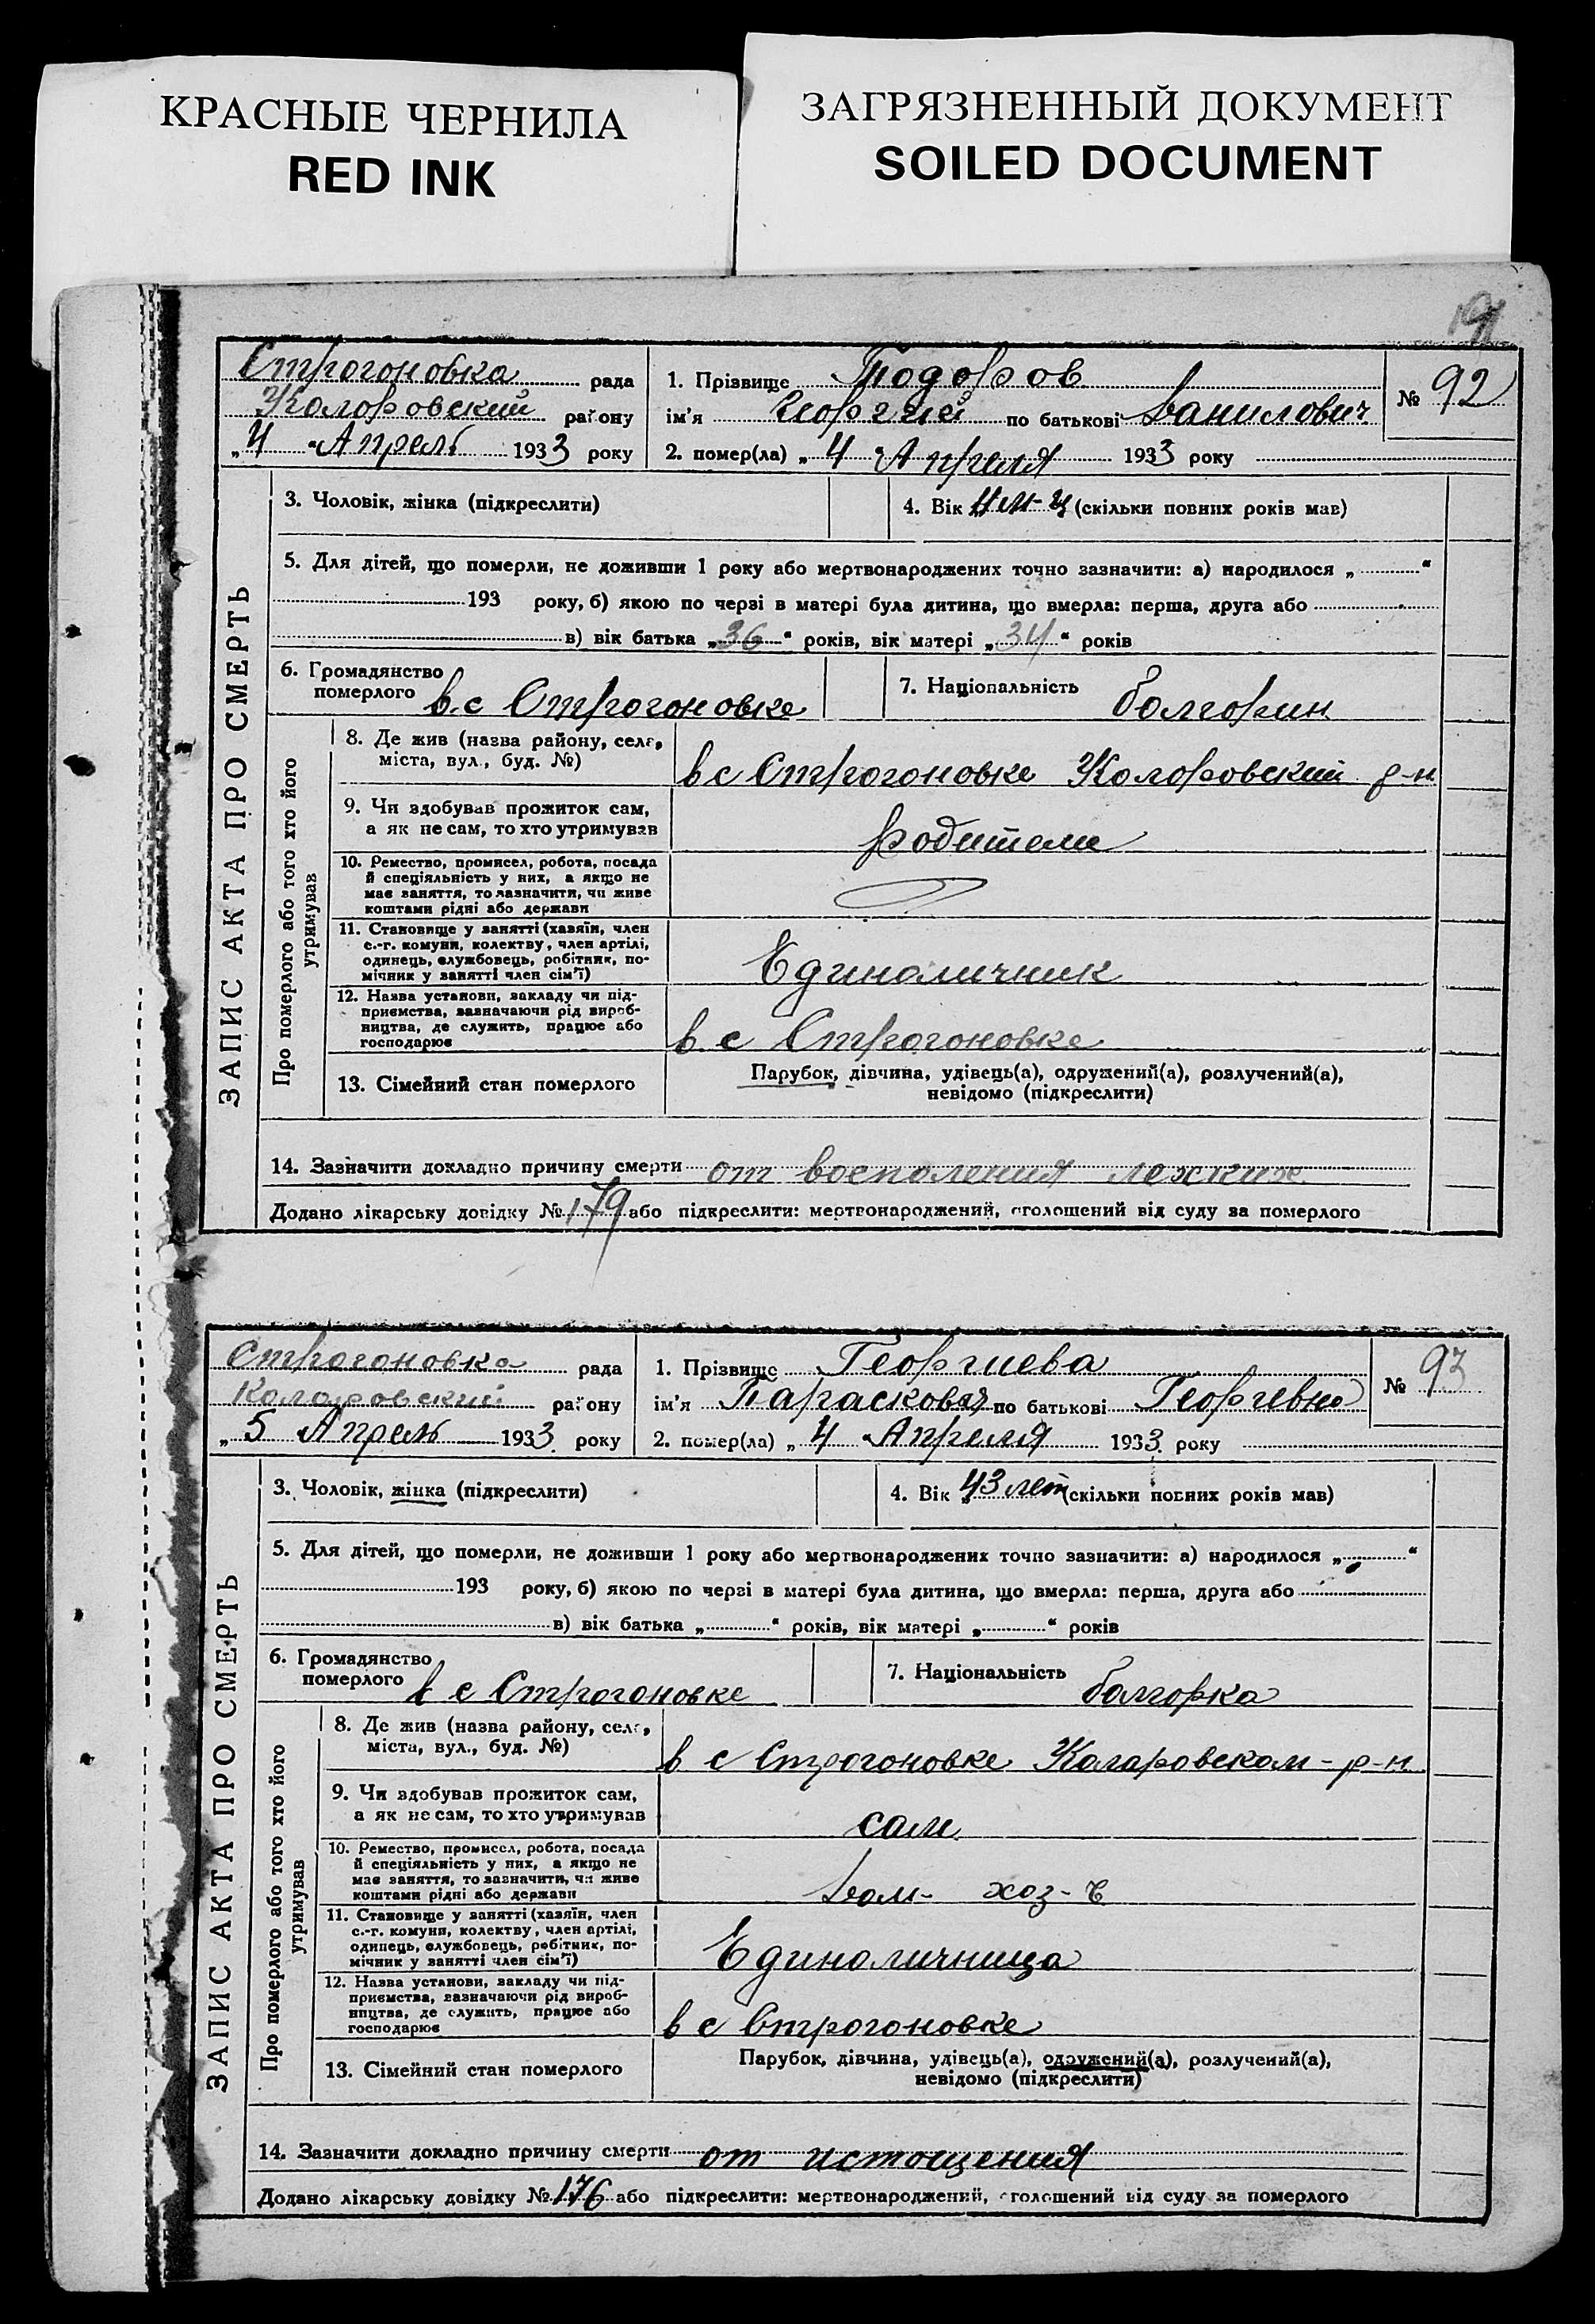 КРАСНЫЕ ЧЕРНИЛА
RED INK
ЗАГРЯЗНЕННЫЙ ДОКУМЕНТ
SOILED DOCUMENT
Строгоновка рада
Колоровский району
„4 “ Апрель 1933 року
1. Прізвище Тодоров
ім'я Георгий по батькові Данилович
2. помер(ла) „ 4 “ Апреля 1933 року
№ 92
ЗАПИС АКТА ПРО СМЕРТЬ
3. Чоловік, жінка (підкреслити)
4. Вік 4 м-ц (скільки повних років мав)
5. Для дітей, що померли, не доживши 1 року або мертвонароджених точно зазначити: а) народилося „ “
193 року, б) якою по черзі в матері була дитина, що вмерла: перша, друга або
в) вік батька „ 36 “ років, вік матері „ 34 “ років
6. Громадянство
померлого в с Строгоновке
7. Національність болгорин
Про померлого або того хто його
утримував
8. Де жив (назва району, села,
міста, вул., буд. №)
в с Строгоновке Колоровский р-н
9. Чи здобував прожиток сам,
а як не сам, то хто утримував
родители
10. Ремество, промисел, робота, посада
й спеціяльність у них, а якщо не
має заняття, то зазначити, чи живе
коштами рідні або держави
11. Становище у занятті (хазяїн, член
с.-г. комуни, колективу, член артілі,
одинець, службовець, робітник, по-
мічник у занятті член сім'ї)
Единоличник
12. Назва установи, закладу чи під-
приємства, зазначаючи рід вироб-
ництва, де служить, працює або
господарює
в с Строгоновке
13. Сімейний стан померлого
Парубок, дівчина, удівець(а), одружений(а), розлучений(а),
невідомо (підкреслити)
14. Зазначити докладно причину смерти от восполения лехких
Додано лікарську довідку № 179 або підкреслити: мертвонароджений, оголошений від суду за померлого
Строгоновка рада
Коларовский району
„ 5 Апрель 1933 року
1. Прізвище Георгиева
ім'я Парасковия по батькові Георгевна
2. помер(ла) „ 4 “ Апреля 1933 року
№ 93
ЗАПИС АКТА ПРО СМЕРТЬ
3. Чоловік, жінка (підкреслити)
4. Вік „43 лет (скільки повних років мав)
5. Для дітей, що померли, не доживши 1 року або мертвонароджених точно зазначити: а) народилося „ “
193 року, б) якою по черзі в матері була дитина, що вмерла: перша, друга або
в) вік батька „ “ років, вік матері „ “ років
6. Громадянство
померлого в с Строгоновке
7. Національність болгорка
Про померлого або того хто його
утримував
8. Де жив (назва району, села,
міста, вул., буд. №)
в с Строгоновке Коларовском - р-н
9. Чи здобував прожиток сам,
а як не сам, то хто утримував
сам
10. Ремество, промисел, робота, посада
й спеціяльність у них, а якщо не
має заняття, то зазначити, чи живе
коштами рідні або держави
Дом- хоз-
11. Становище у занятті (хазяїн, член
с.-г. комуни, колективу, член артілі,
одинець, службовець, робітник, по-
мічник у занятті член сім'ї)
Единоличница
12. Назва установи, закладу чи під-
приємства, зазначаючи рід вироб-
ництва, де служить, працює або
господарює
в с Строгоновке
13. Сімейний стан померлого
Парубок, дівчина, удівець(а), одружений(а), розлучений(а),
невідомо (підкреслити)
14. Зазначити докладно причину смерти от истощения
Додано лікарську довідку № 176 або підкреслити: мертвонароджений, оголошений від суду за померлого